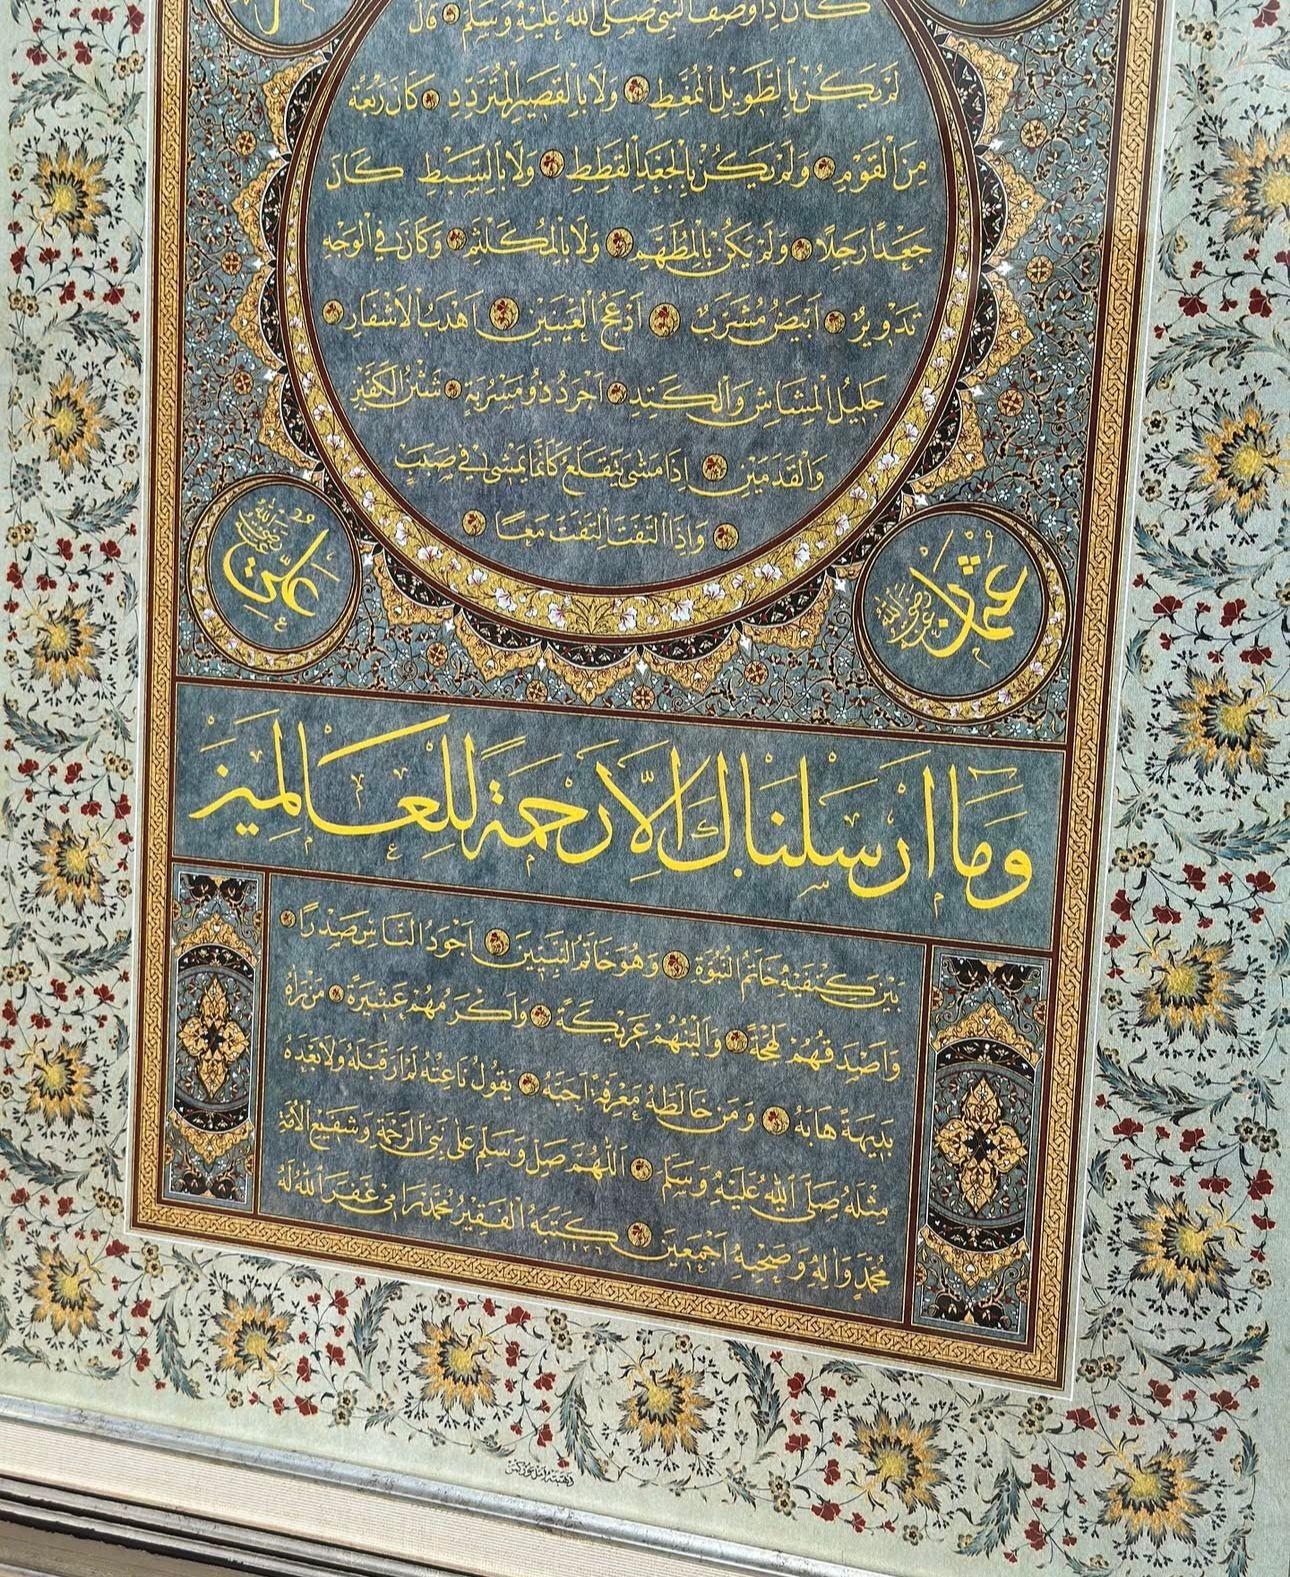 كَانَ إِذَا وَصَفَ النَّبِيَّ صَلَّى اللهُ عَلَيْهِ وَسَلَّمَ قَالَ
لَمْ يَكُنْ بِالطَّوِيلِ الْمُمَّغِطِ وَلَا بِالْقَصِيرِ الْمُتَرَدِّدِ كَانَ رَبْعَةً
مِنَ الْقَوْمِ وَلَمْ يَكُنْ بِالْجَعْدِ الْقَطَطِ وَلَا بِالسَّبِطِ كَانَ
جَعْدًا رَجِلًا وَلَمْ يَكُنْ بِالْمُطَهَّمِ وَلَا بِالْمُكَلْثَمِ وَكَانَ فِي الْوَجْهِ
تَدْوِيرٌ أَبْيَضُ مُشْرَبٌ أَدْعَجُ الْعَيْنَيْنِ أَهْدَبُ الْأَشْفَارِ
جَلِيلُ الْمُشَاشِ وَالْكَتَدِ أَجْرَدُ ذُو مَسْرُبَةٍ شَثْنُ الْكَفَّيْنِ
وَالْقَدَمَيْنِ إِذَا مَشَى يَتَقَلَّعُ كَأَنَّمَا يَمْشِي فِي صَبَبٍ
وَإِذَا الْتَفَتَ الْتَفَتَ مَعًا
عُثْمَان رَضِيَ اللهُ عَنْهُ
عَلِيّ رَضِيَ اللهُ عَنْهُ
وَمَا أَرْسَلْنَاكَ إِلَّا رَحْمَةً لِلْعَالَمِينَ
بَيْنَ كَتِفَيْهِ خَاتَمُ النُّبُوَّةِ وَهُوَ خَاتَمُ النَّبِيِّينَ أَجْوَدُ النَّاسِ صَدْرًا
وَأَصْدَقُهُمْ لَهْجَةً وَأَلْيَنُهُمْ عَرِيكَةً وَأَكْرَمُهُمْ عَشِيرَةً مَنْ رَآهُ
بَدِيهَةً هَابَهُ وَمَنْ خَالَطَهُ مَعْرِفَةً أَحَبَّهُ يَقُولُ نَاعِتُهُ لَمْ أَرَ قَبْلَهُ وَلَا بَعْدَهُ
مِثْلَهُ صَلَّى اللهُ عَلَيْهِ وَسَلَّمَ اللّٰهُمَّ صَلِّ وَسَلِّمْ عَلَى نَبِيِّ الرَّحْمَةِ وَشَفِيعِ الْأُمَّةِ
مُحَمَّدٍ وَآلِهِ وَصَحْبِهِ أَجْمَعِينَ كَتَبَهُ الْفَقِيرُ مُحَمَّد رَامِي غَفَرَ اللهُ لَهُ